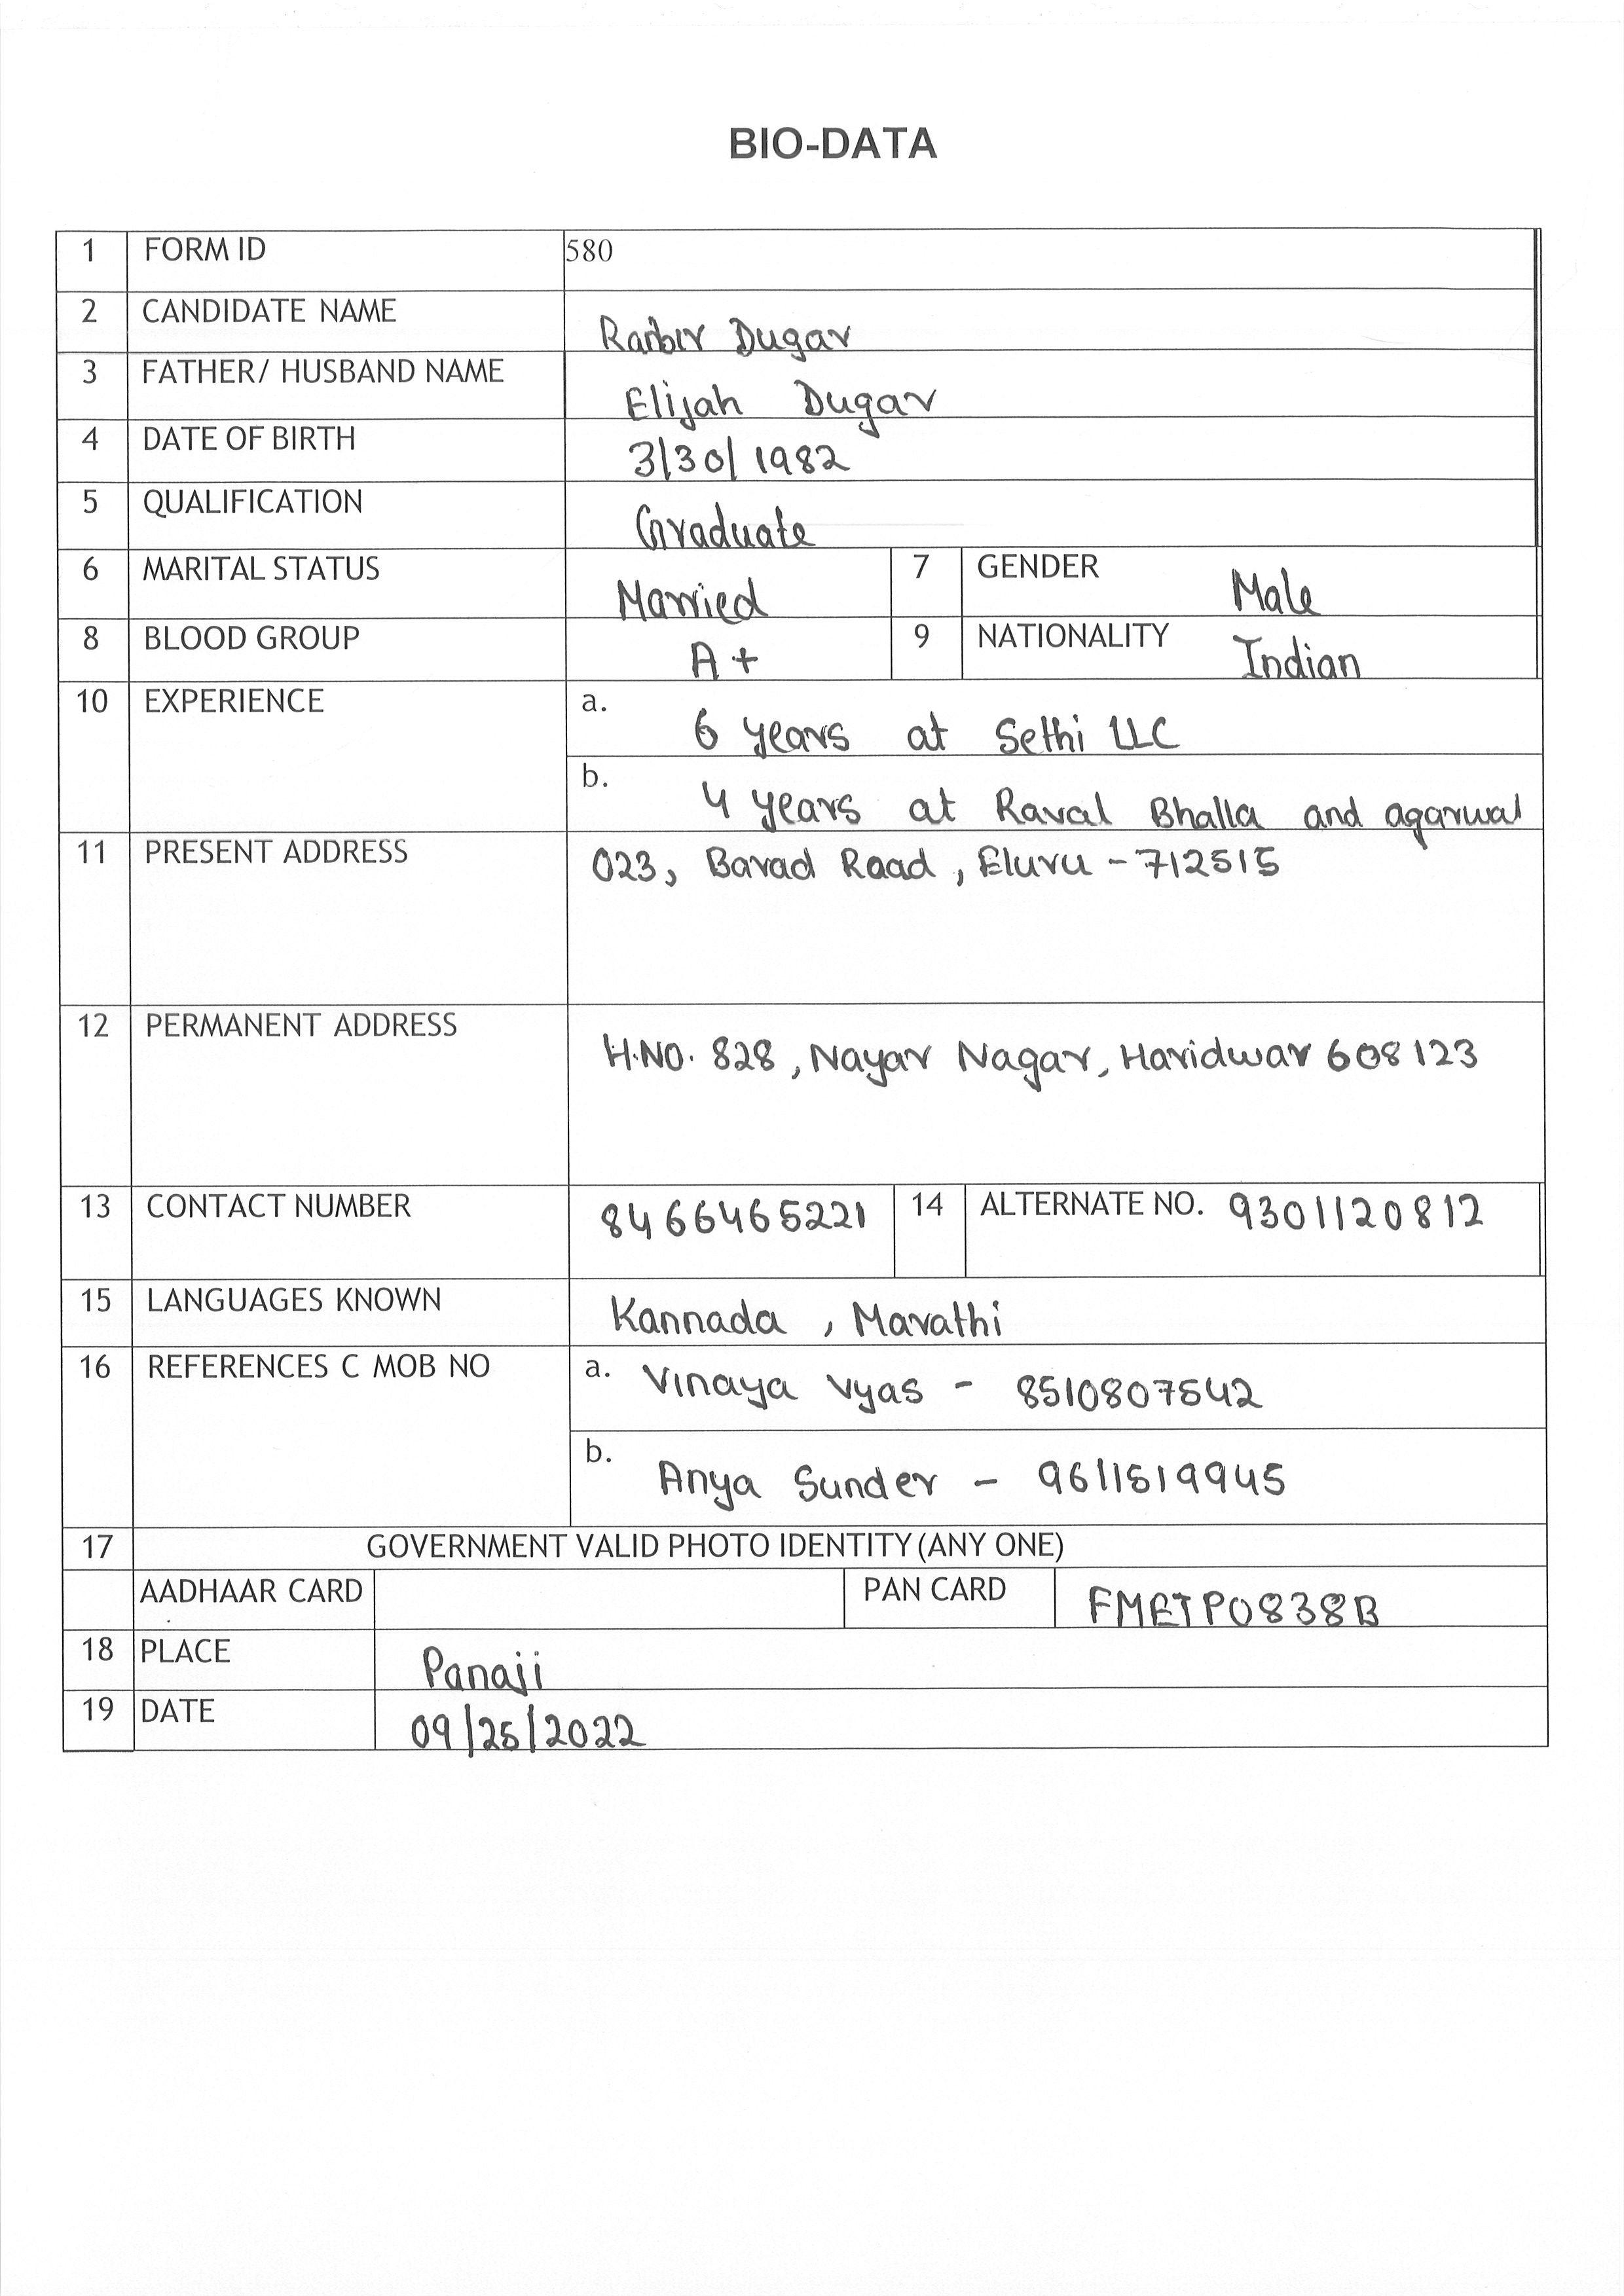 BIO-DATA
1 FORM ID 580
2 CANDIDATE NAME Ranbir Dugar
3 FATHER/ HUSBAND NAME Elijah Dugar
4 DATE OF BIRTH 3/30/1982
5 QUALIFICATION Graduate
6 MARITAL STATUS Married 7 GENDER Male
8 BLOOD GROUP A+ 9 NATIONALITY Indian
10 EXPERIENCE a. 6 years at Sethi LLC
b. 4 years at Raval Bhalla and agarwal
11 PRESENT ADDRESS 023, Barad Raad, Eluru - 712515
12 PERMANENT ADDRESS H.NO. 828, Nayar Nagar, Haridwar 608123
13 CONTACT NUMBER 8466465221 14 ALTERNATE NO. 9301120812
15 LANGUAGES KNOWN Kannada , Marathi
16 REFERENCES C MOB NO a. Vinaya Vyas - 8510807542
b. Anya Sunder - 9611519945
17 GOVERNMENT VALID PHOTO IDENTITY (ANY ONE)
AADHAAR CARD PAN CARD FMETP0838B
18 PLACE Panaji
19 DATE 09/25/2022